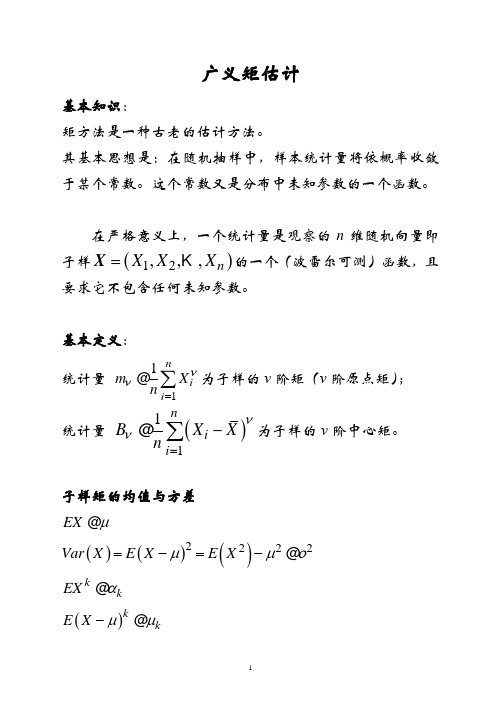 广义矩估计
基本知识：
矩方法是一种古老的估计方法。
其基本思想是：在随机抽样中，样本统计量将依概率收敛
于某个常数。这个常数又是分布中未知参数的一个函数。
在严格意义上，一个统计量是观察的 n 维随机向量即
子样X = (X₁, X₂,K , Xₙ)的一个（波雷尔可测）函数，且
要求它不包含任何未知参数。
基本定义：
统计量 m_ν @ 1/n ∑_{i=1}^{n} X_i^ν 为子样的 v 阶矩（v 阶原点矩）；
统计量 B_ν @ 1/n ∑_{i=1}^{n} (X_i − X̄)^ν 为子样的 v 阶中心矩。
子样矩的均值与方差
EX @μ
Var(X) = E(X − μ)² = E(X²) − μ² @σ²
EX^k @α_k
E(X − μ)^k @μ_k
1